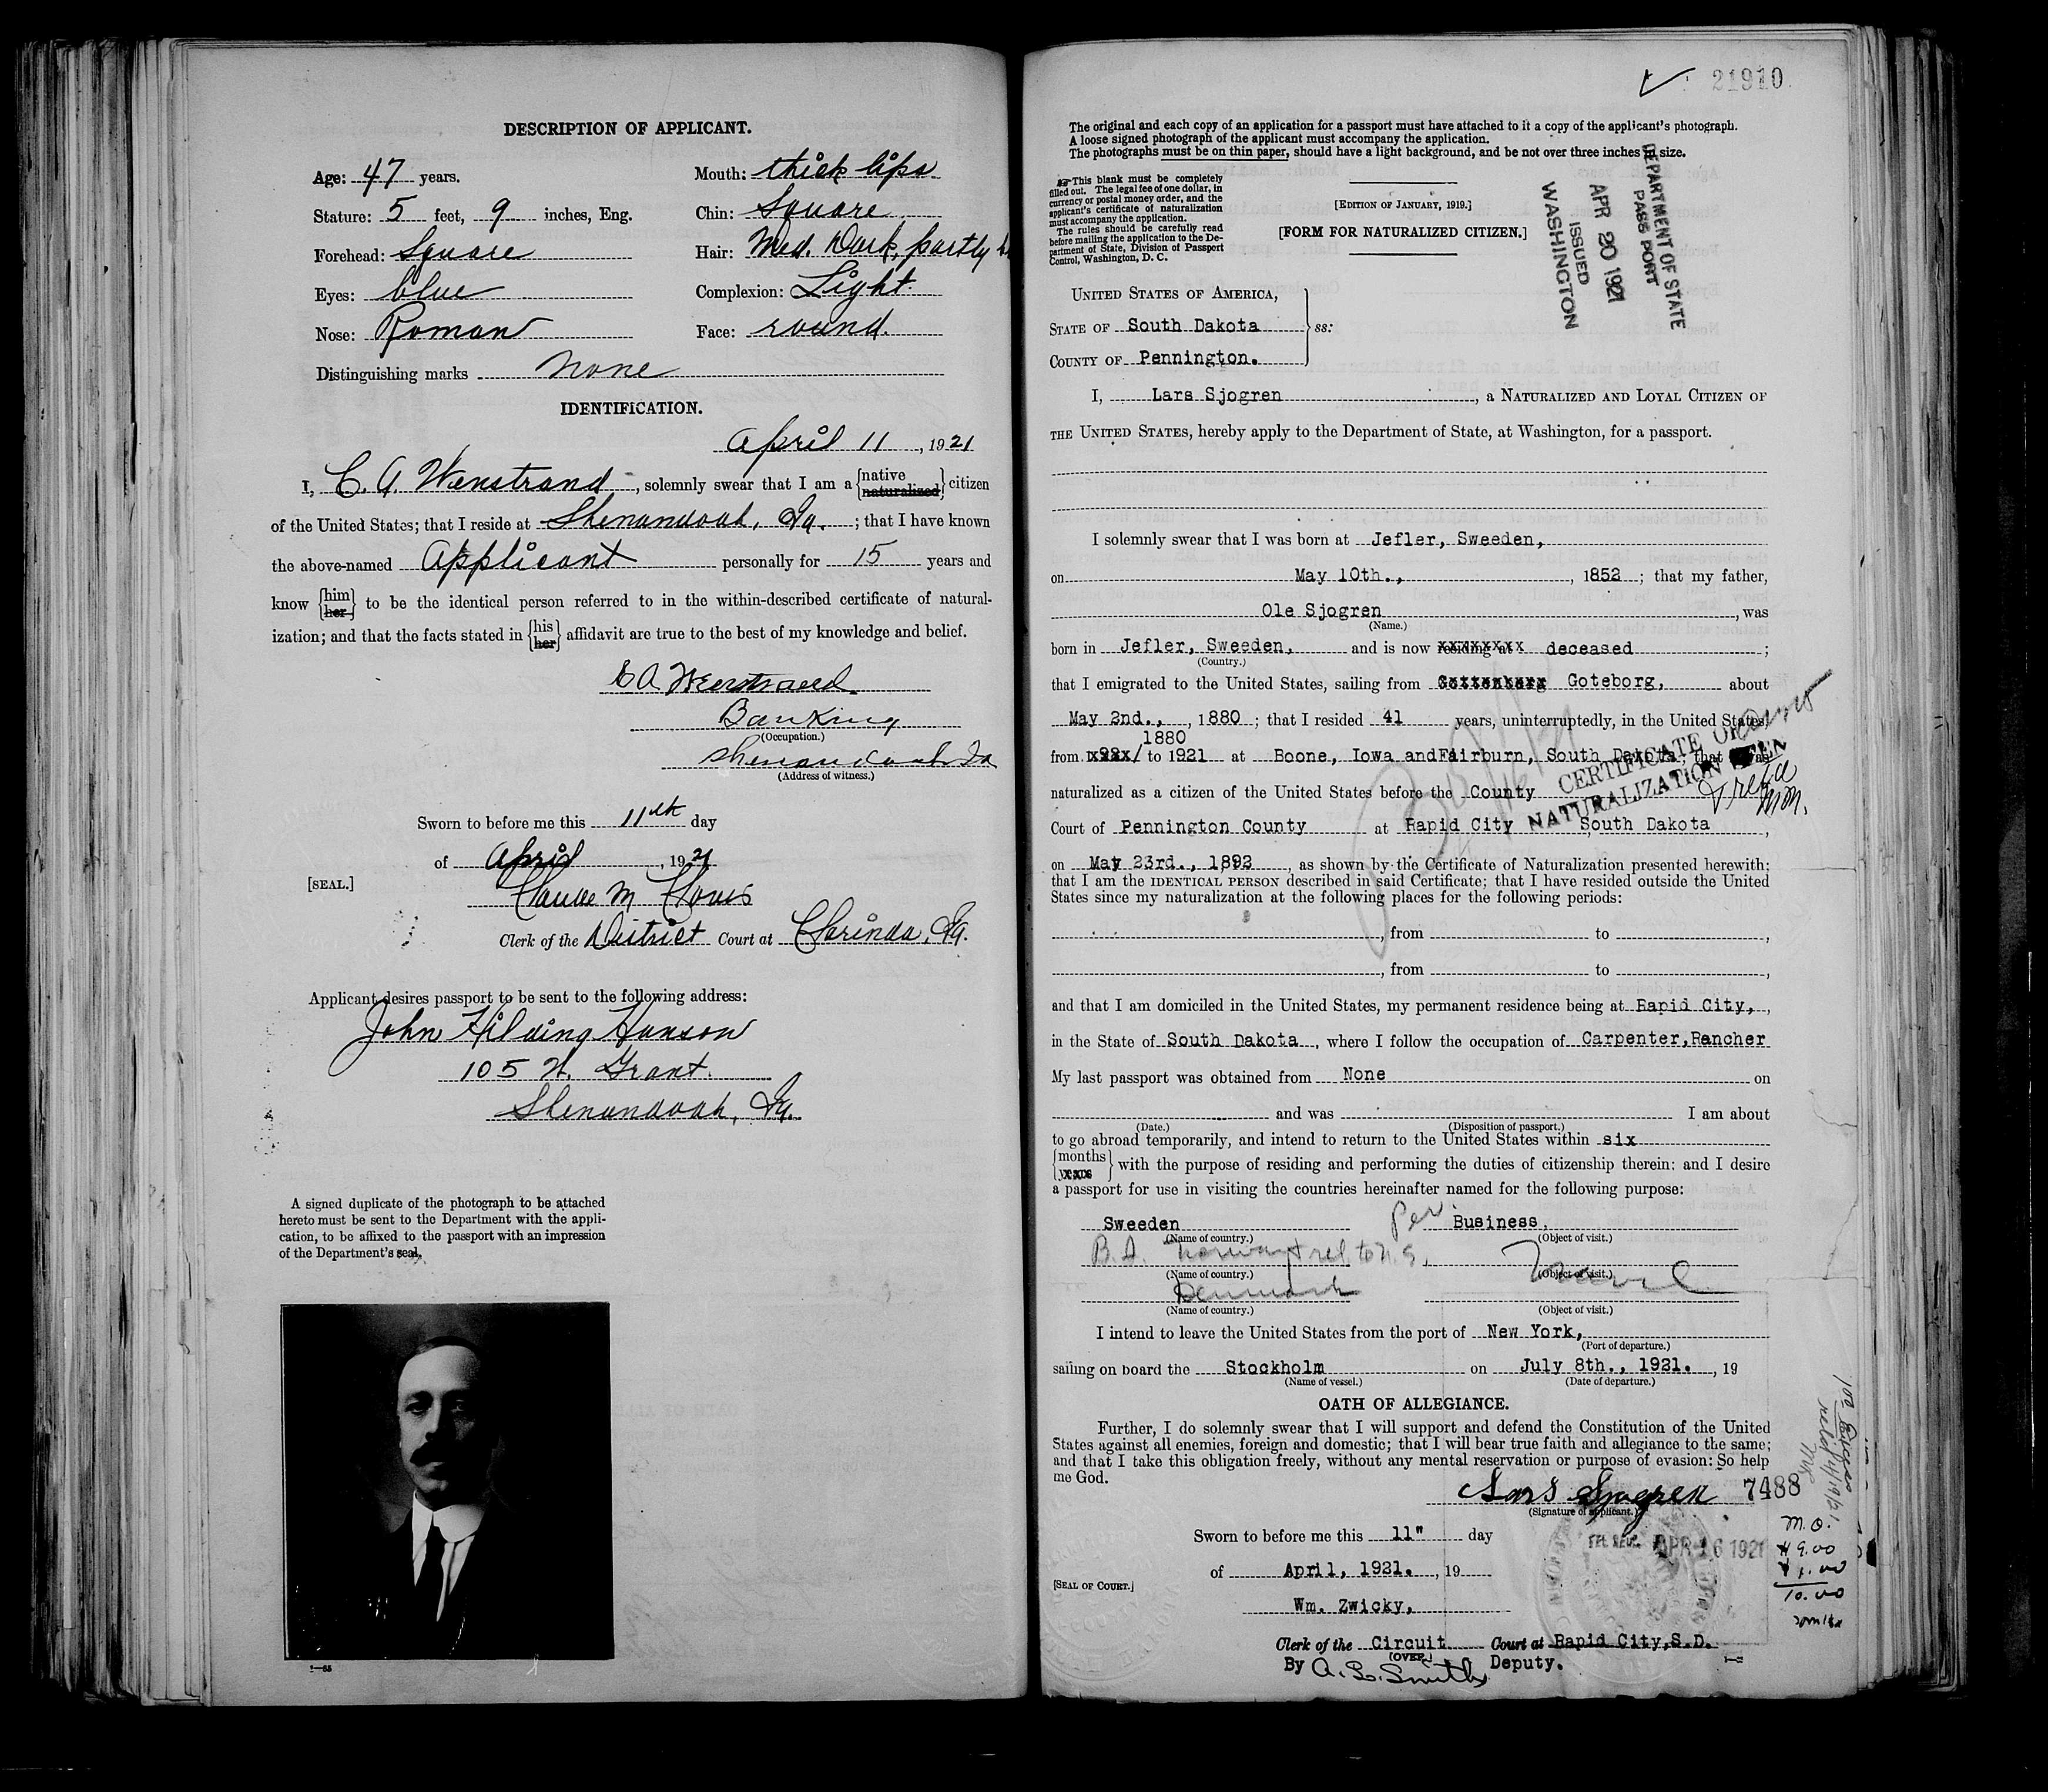 DESCRIPTION OF APPLICANT.
Age: 47 years.
Mouth: thick lips
Stature: 5 feet, 9 inches, Eng.
Chin: Square
Forehead: Square
Hair: Med. Dark, partly
Eyes: blue
Complexion: Light.
Nose: Roman
Face: round.
Distinguishing marks none
IDENTIFICATION.
April 11, 1921
I, C. A. Wenstrand, solemnly swear that I am a {native naturalized} citizen
of the United States; that I reside at Shenandoah, Ia.; that I have known
the above-named Applicant personally for 15 years and
know {him her} to be the identical person referred to in the within-described certificate of natural-
ization; and that the facts stated in {his her} affidavit are true to the best of my knowledge and belief.
C A Wenstrand
Banking
(Occupation.)
Shenandoah Ia
(Address of witness.)
Sworn to before me this 11th day
of April, 1921
[SEAL.]
Claude M
Clerk of the District Court at Clarinda, Ia.
Applicant desires passport to be sent to the following address:
John Hilding Hanson
105 N. Grant.
Shenandoah, Ia.
A signed duplicate of the photograph to be attached
hereto must be sent to the Department with the appli-
cation, to be affixed to the passport with an impression
of the Department's seal.
21910
The original and each copy of an application for a passport must have attached to it a copy of the applicant's photograph.
A loose signed photograph of the applicant must accompany the application.
The photographs must be on thin paper, should have a light background, and be not over three inches in size.
This blank must be completely
filled out. The legal fee of one dollar, in
currency or postal money order, and the
applicant's certificate of naturalization
must accompany the application.
The rules should be carefully read
before mailing the application to the De-
partment of State, Division of Passport
Control, Washington, D. C.
[EDITION OF JANUARY, 1919.]
[FORM FOR NATURALIZED CITIZEN.]
DEPARTMENT OF STATE
PASSPORT
APR 20 1921
ISSUED
WASHINGTON
UNITED STATES OF AMERICA,
STATE OF South Dakota ss:
COUNTY OF Pennington.
I, Lars Sjogren, a NATURALIZED AND LOYAL CITIZEN OF
THE UNITED STATES, hereby apply to the Department of State, at Washington, for a passport.
I solemnly swear that I was born at Jefler, Sweeden,
on May 10th., 1852; that my father,
Ole Sjogren, was
(Name.)
born in Jefler, Sweeden, and is now residing at deceased;
(Country.)
that I emigrated to the United States, sailing from Gottenberg Goteborg, about
May 2nd., 1880; that I resided 41 years, uninterruptedly, in the United States,
1880
from to 1921 at Boone, Iowa and Fairburn, South Dakota; that I was
CERTIFICATE OF
NATURALIZATION
naturalized as a citizen of the United States before the County
Court of Pennington County at Rapid City South Dakota,
on May 23rd., 1892, as shown by the Certificate of Naturalization presented herewith;
that I am the IDENTICAL PERSON described in said Certificate; that I have resided outside the United
States since my naturalization at the following places for the following periods:
, from to ,
, from to ,
and that I am domiciled in the United States, my permanent residence being at Rapid City,,
in the State of South Dakota, where I follow the occupation of Carpenter, Rancher
My last passport was obtained from None on
and was I am about
(Date.) (Disposition of passport.)
to go abroad temporarily, and intend to return to the United States within six
{months years} with the purpose of residing and performing the duties of citizenship therein: and I desire
a passport for use in visiting the countries hereinafter named for the following purpose:
Sweeden Business.
(Name of country.) (Object of visit.)
Norway Travel
(Name of country.) (Object of visit.)
Denmark
(Name of country.) (Object of visit.)
I intend to leave the United States from the port of New York,
(Port of departure.)
sailing on board the Stockholm on July 8th., 1921., 19
(Name of vessel.) (Date of departure.)
OATH OF ALLEGIANCE.
Further, I do solemnly swear that I will support and defend the Constitution of the United
States against all enemies, foreign and domestic; that I will bear true faith and allegiance to the same;
and that I take this obligation freely, without any mental reservation or purpose of evasion: So help
me God.
Lars Sjogren 7488
(Signature of applicant.)
Sworn to before me this 11" day
APR 16 1921
of April, 1921., 19
M.O.
9.00
1.00
10.00
[SEAL OF COURT.]
Wm. Zwicky,
Clerk of the Circuit Court at Rapid City, S.D.
(OVER.)
By A. L. Smith Deputy.